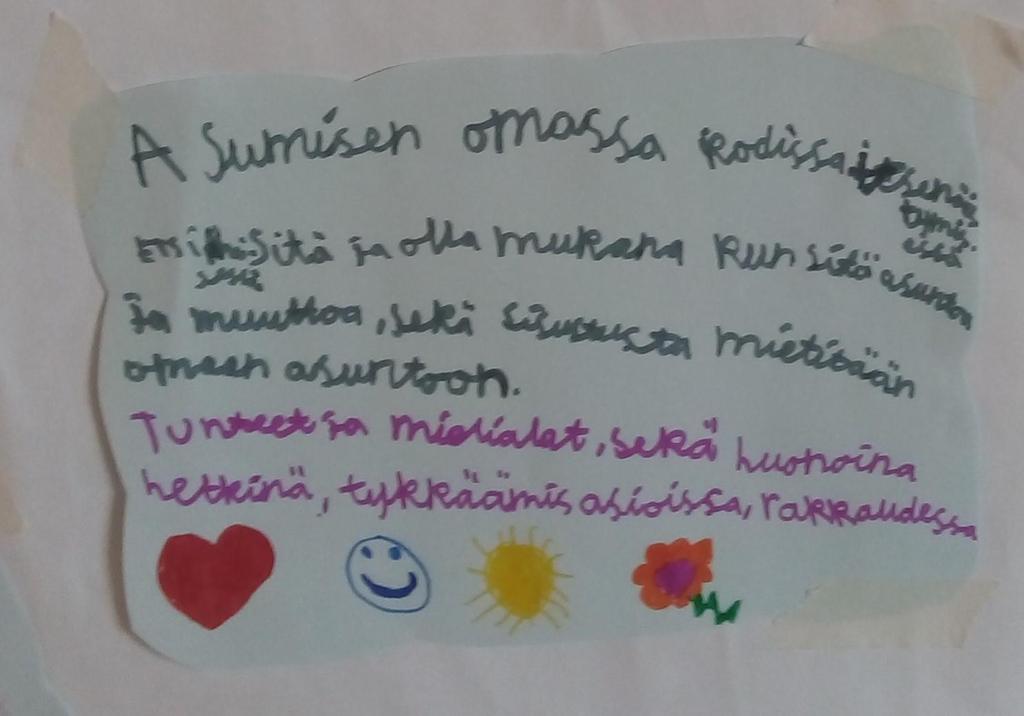 Asumisen omassa kodissa itsenäis
tymi
sessä
ja olla mukana kun sitä asuntoa
ja muuttoa, sekä sisustusta mietitään
omaan asuntoon.
Tunteet ja mielialat, sekä huonoina
hetkinä, tykkäämis asioissa, rakkaudessa